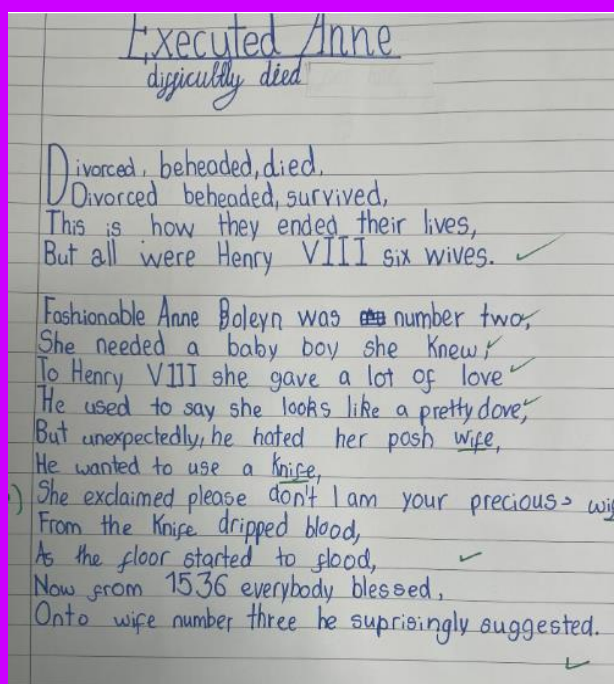 Executed Anne
difficultly died
Divorced, beheaded, died,
Divorced beheaded, survived,
This is how they ended their lives,
But all were Henry VIII six wives.
Fashionable Anne Boleyn was number two,
She needed a baby boy she knew,
To Henry VIII she gave a lot of love
He used to say she looks like a pretty dove,
But unexpectedly, he hated her posh wife,
He wanted to use a knife,
She exclaimed please don't I am your precious
From the knife dripped blood,
As the floor started to flood,
Now from 1536 everybody blessed,
Onto wife number three he suprisingly suggested.